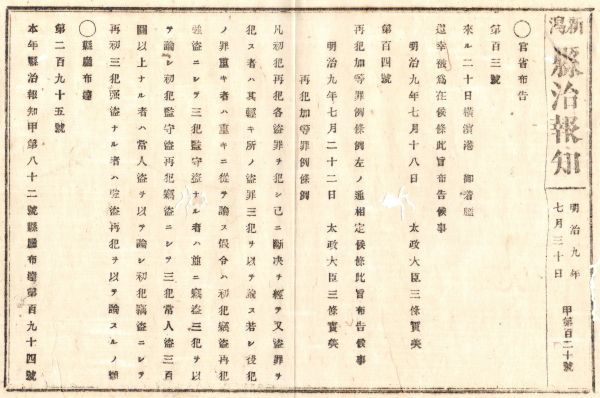 新潟縣治報知
明治九年
七月三十日
甲第百二十號
○官省布告
第百三號
來ル二十日横濱港 御着艦
還幸被爲在候條此旨布告候事
明治九年七月十八日 太政大臣三條實美
第百四號
再犯加等罪例條例左ノ通相定候條此旨布告候事
明治九年七月二十二日 太政大臣三條實美
再犯加等罪例條例
凡初犯再犯各盜罪ヲ犯シ已ニ斷决ヲ經テ又盜罪ヲ
犯ス者ハ其輕キ所ノ盜罪三犯ヲ以テ論ス若シ後犯
ノ罪重キ者ハ重キニ從テ論ス假令ハ初犯竊盜再犯
強盜ニシテ三犯監守盜ナル者ハ並ニ竊盜三犯ヲ以
テ論シ初犯監守盜再犯竊盜ニシテ三犯常人盜三百
圓以上ナル者ハ常人盜ヲ以テ論シ初犯竊盜ニシテ
再初三犯強盜ナル者ハ強盜再犯ヲ以テ論スルノ類
○縣廳布達
第二百九十五號
本年縣治報知甲第八十二號縣廳布達第百九十四號